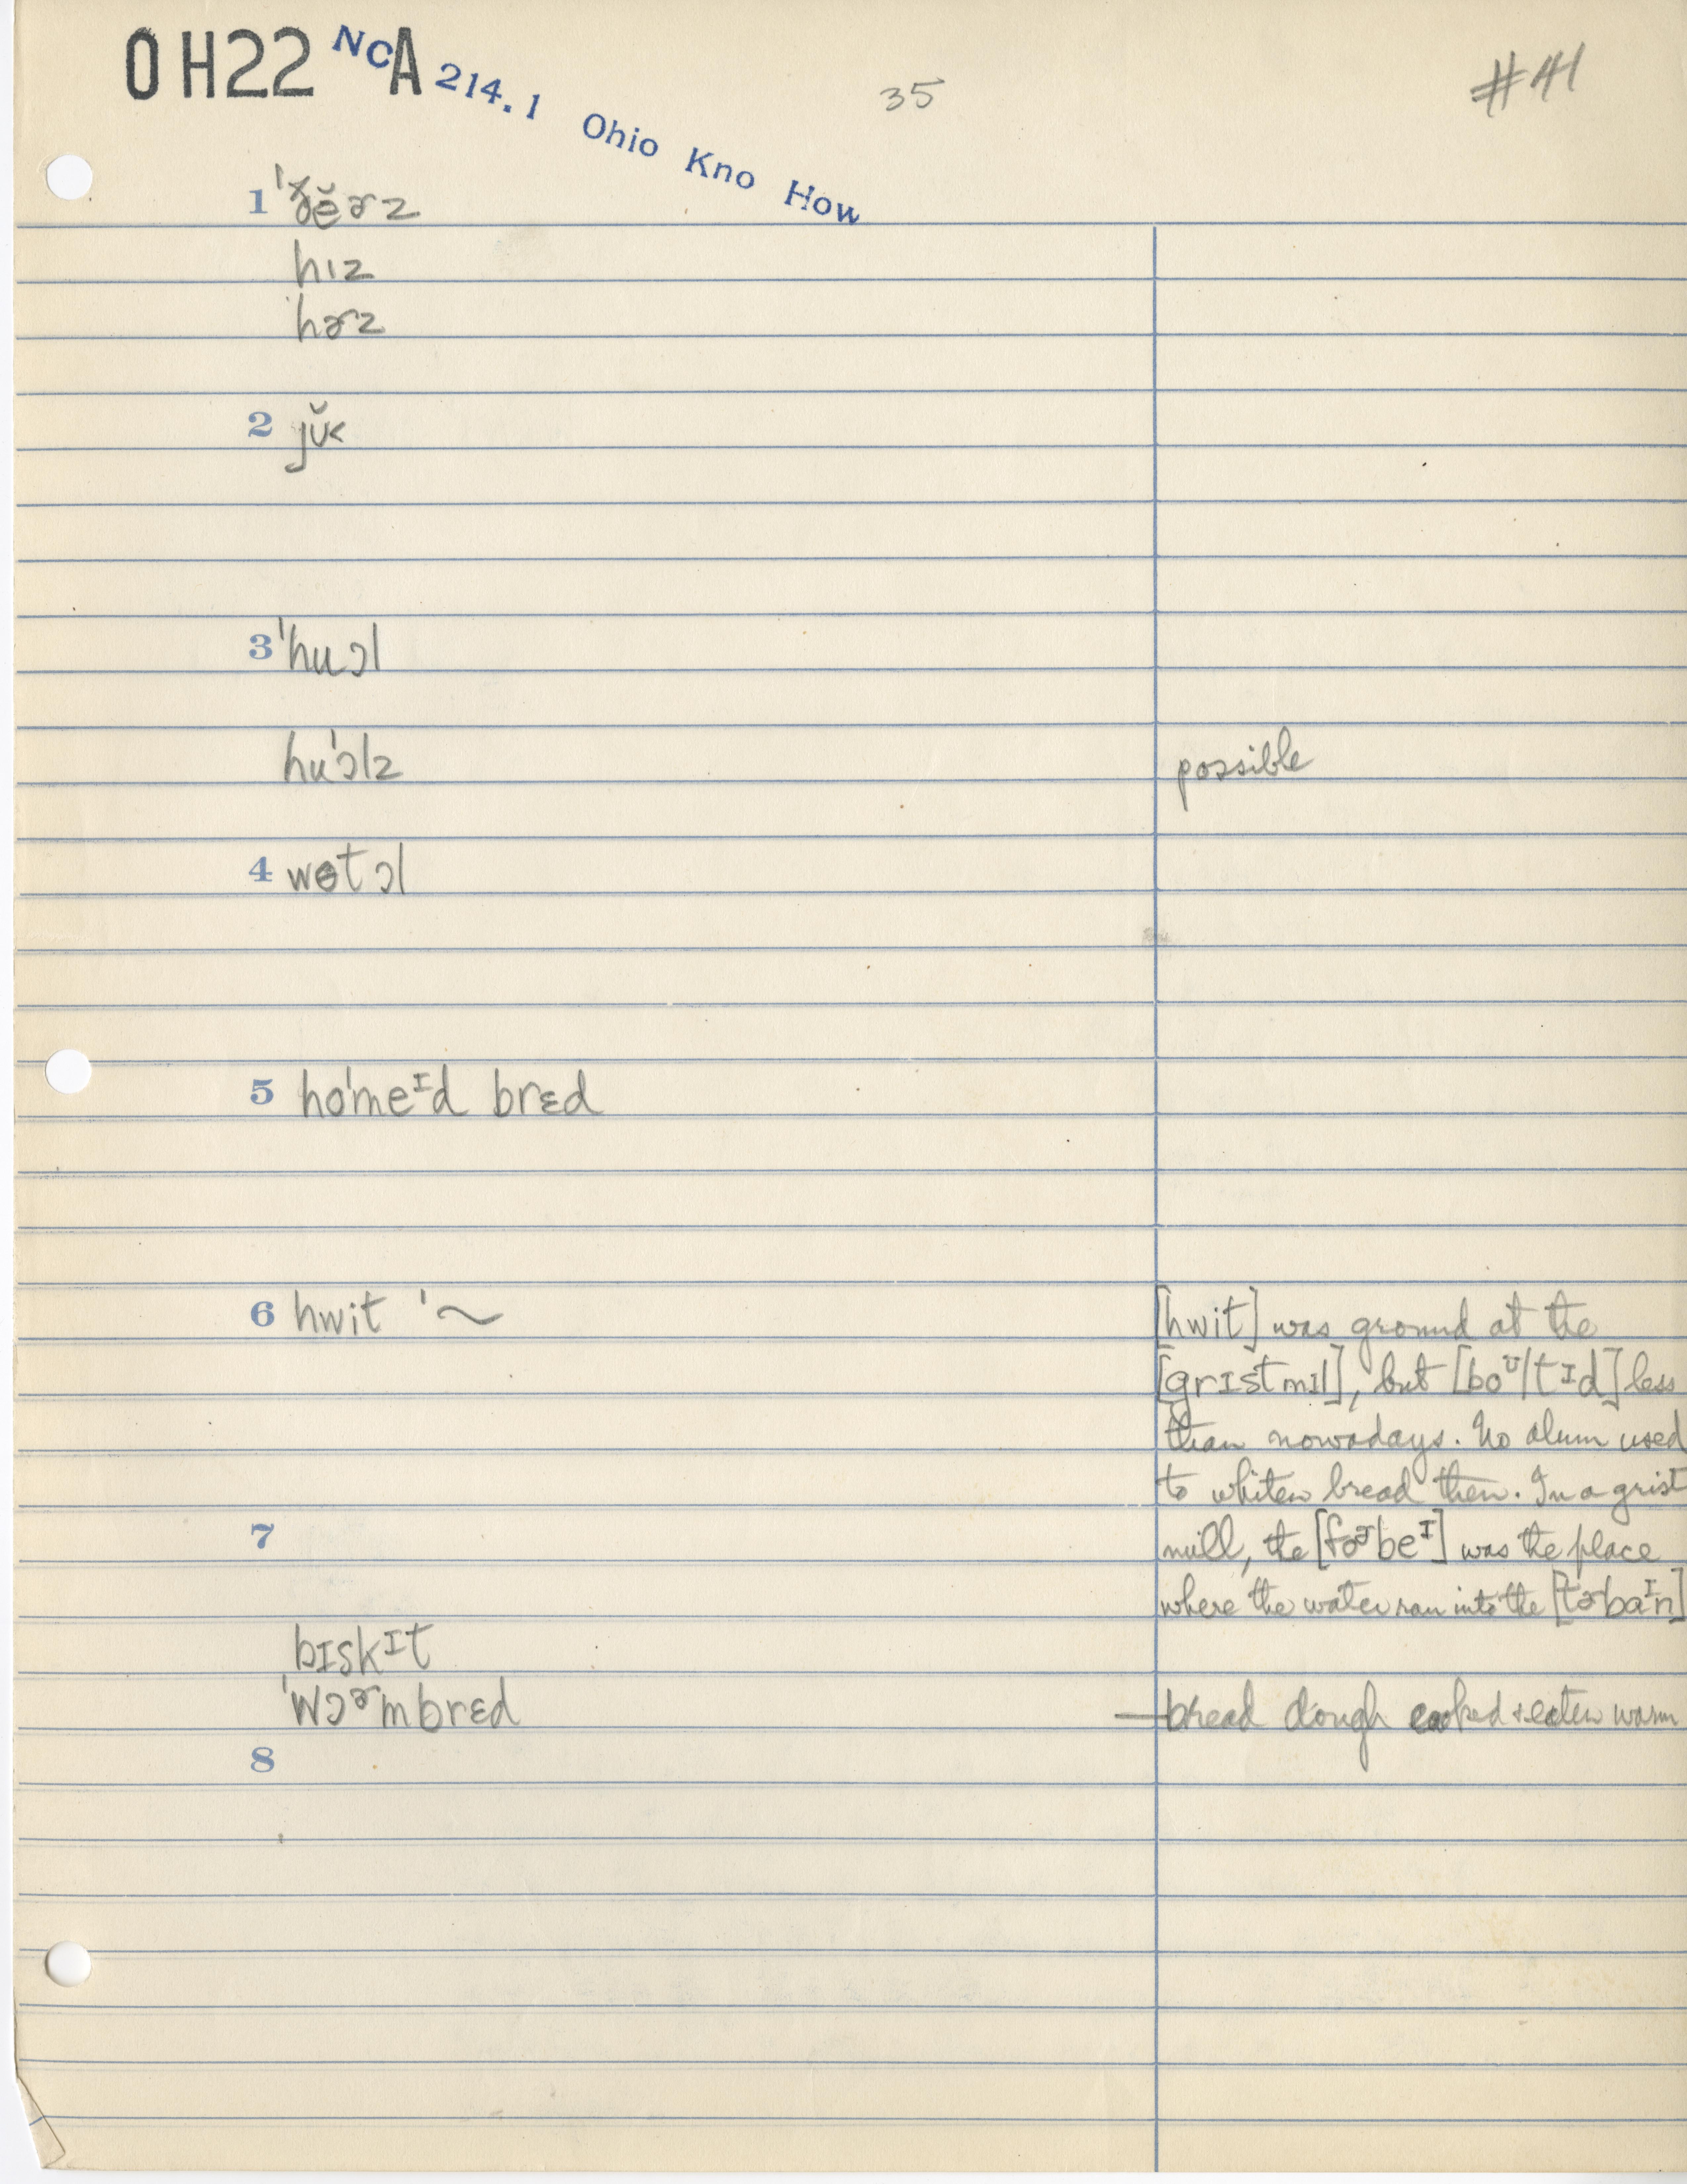 OH22 NCA 214.1 Ohio Kno How 35 #41
1 ˈðĕɚz
hɪz
hɚz
2 jŭ<
3 ˈhuɔl
huˈɔlz possible
4 wɵtɔl
5 hoˈmeᴵd brɛd
6 hwit ˈ~ [hwit] was ground at the
[grɪstmɪl], but [boᶷltᴵd] less
than nowadays. No alum used
to whiten bread then. In a grist
7 mill, the [foɚbeᴵ] was the place
where the water ran into the [tɚbaᴵn]
bɪskᴵt
ˈwɔɚmbrɛd — bread dough cooked + eaten warm
8